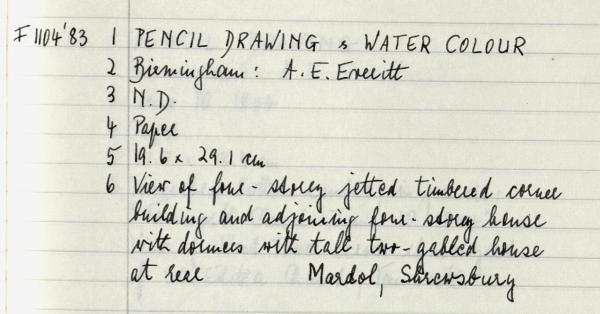 F1104'83 1 PENCIL DRAWING & WATER COLOUR
2 Birmingham: A. E. Everitt
3 N.D.
4 Paper
5 19.6 x 29.1 cm
6 View of four-storey jetted timbered corner
building and adjoining four-storey house
with dormers with tall two-gabled house
at rear Mardol, Shrewsbury